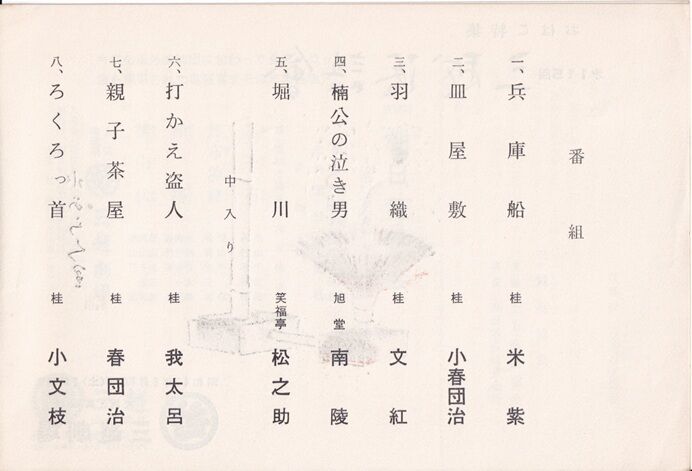 番組
一、兵庫船 桂 米紫
二、皿屋敷 桂 小春団治
三、羽織 桂 文紅
四、楠公の泣き男 旭堂 南陵
五、堀川 笑福亭 松之助
中入り
六、打かえ盗人 桂 我太呂
七、親子茶屋 桂 春団治
八、ろくろっ首 桂 小文枝